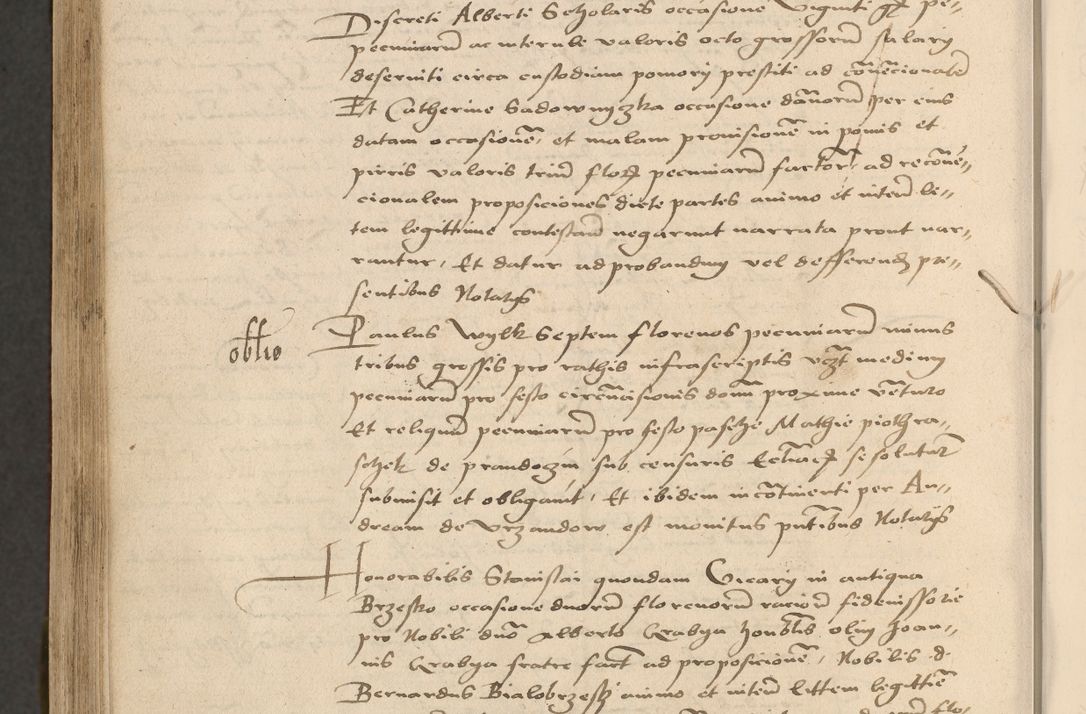 Discreti Alberti Scholaris occasione viginti gr pe-
pecuniarū ac interule valoris octo grossorū salary
deseruiti circa custodiam pomory prestiti ad cōuēcionalē
Et Catherine Sadownyczka occasione dānorū per eius
datam occasionē, et malam prouisionē in pomis et
pirris valoris triū flor pecuniarū factor, ad recōuē-
cionalem proposiciones dicte partes animo et intenū li-
tem legittime contestanū negarunt narrata prout nar-
rantur, Et datur ad probandum vel defferend pre-
sentibus Notatis
oblīo
Paulus Wylk Septem florenos pecuniarū minus
tribus grossis pro rathis infrascriptis vczt medium
pecuniarū pro festo circūcisionis domī proxime vēturo
Et reliquū pecuniarū pro festo pasche Mathie piothra-
schek de prandoczin sub censuris ecclīacis se soluturū
submisit et obligauit, Et ibidem in cōtinenti per An-
dream de Vrzandow est monitus pntibus Notatis
Honorabilis Stanislai quondam Vicary in antiqua
Brzesko occasione duorū florenorū racioē fideiussorie
pro Nobili dno Alberto Grabya honblis olim Joan-
nis Grabya fratre fact ad proposicionē, Nobilis d
Bernardus Bialobrzesky animo et intenū littem legittīe